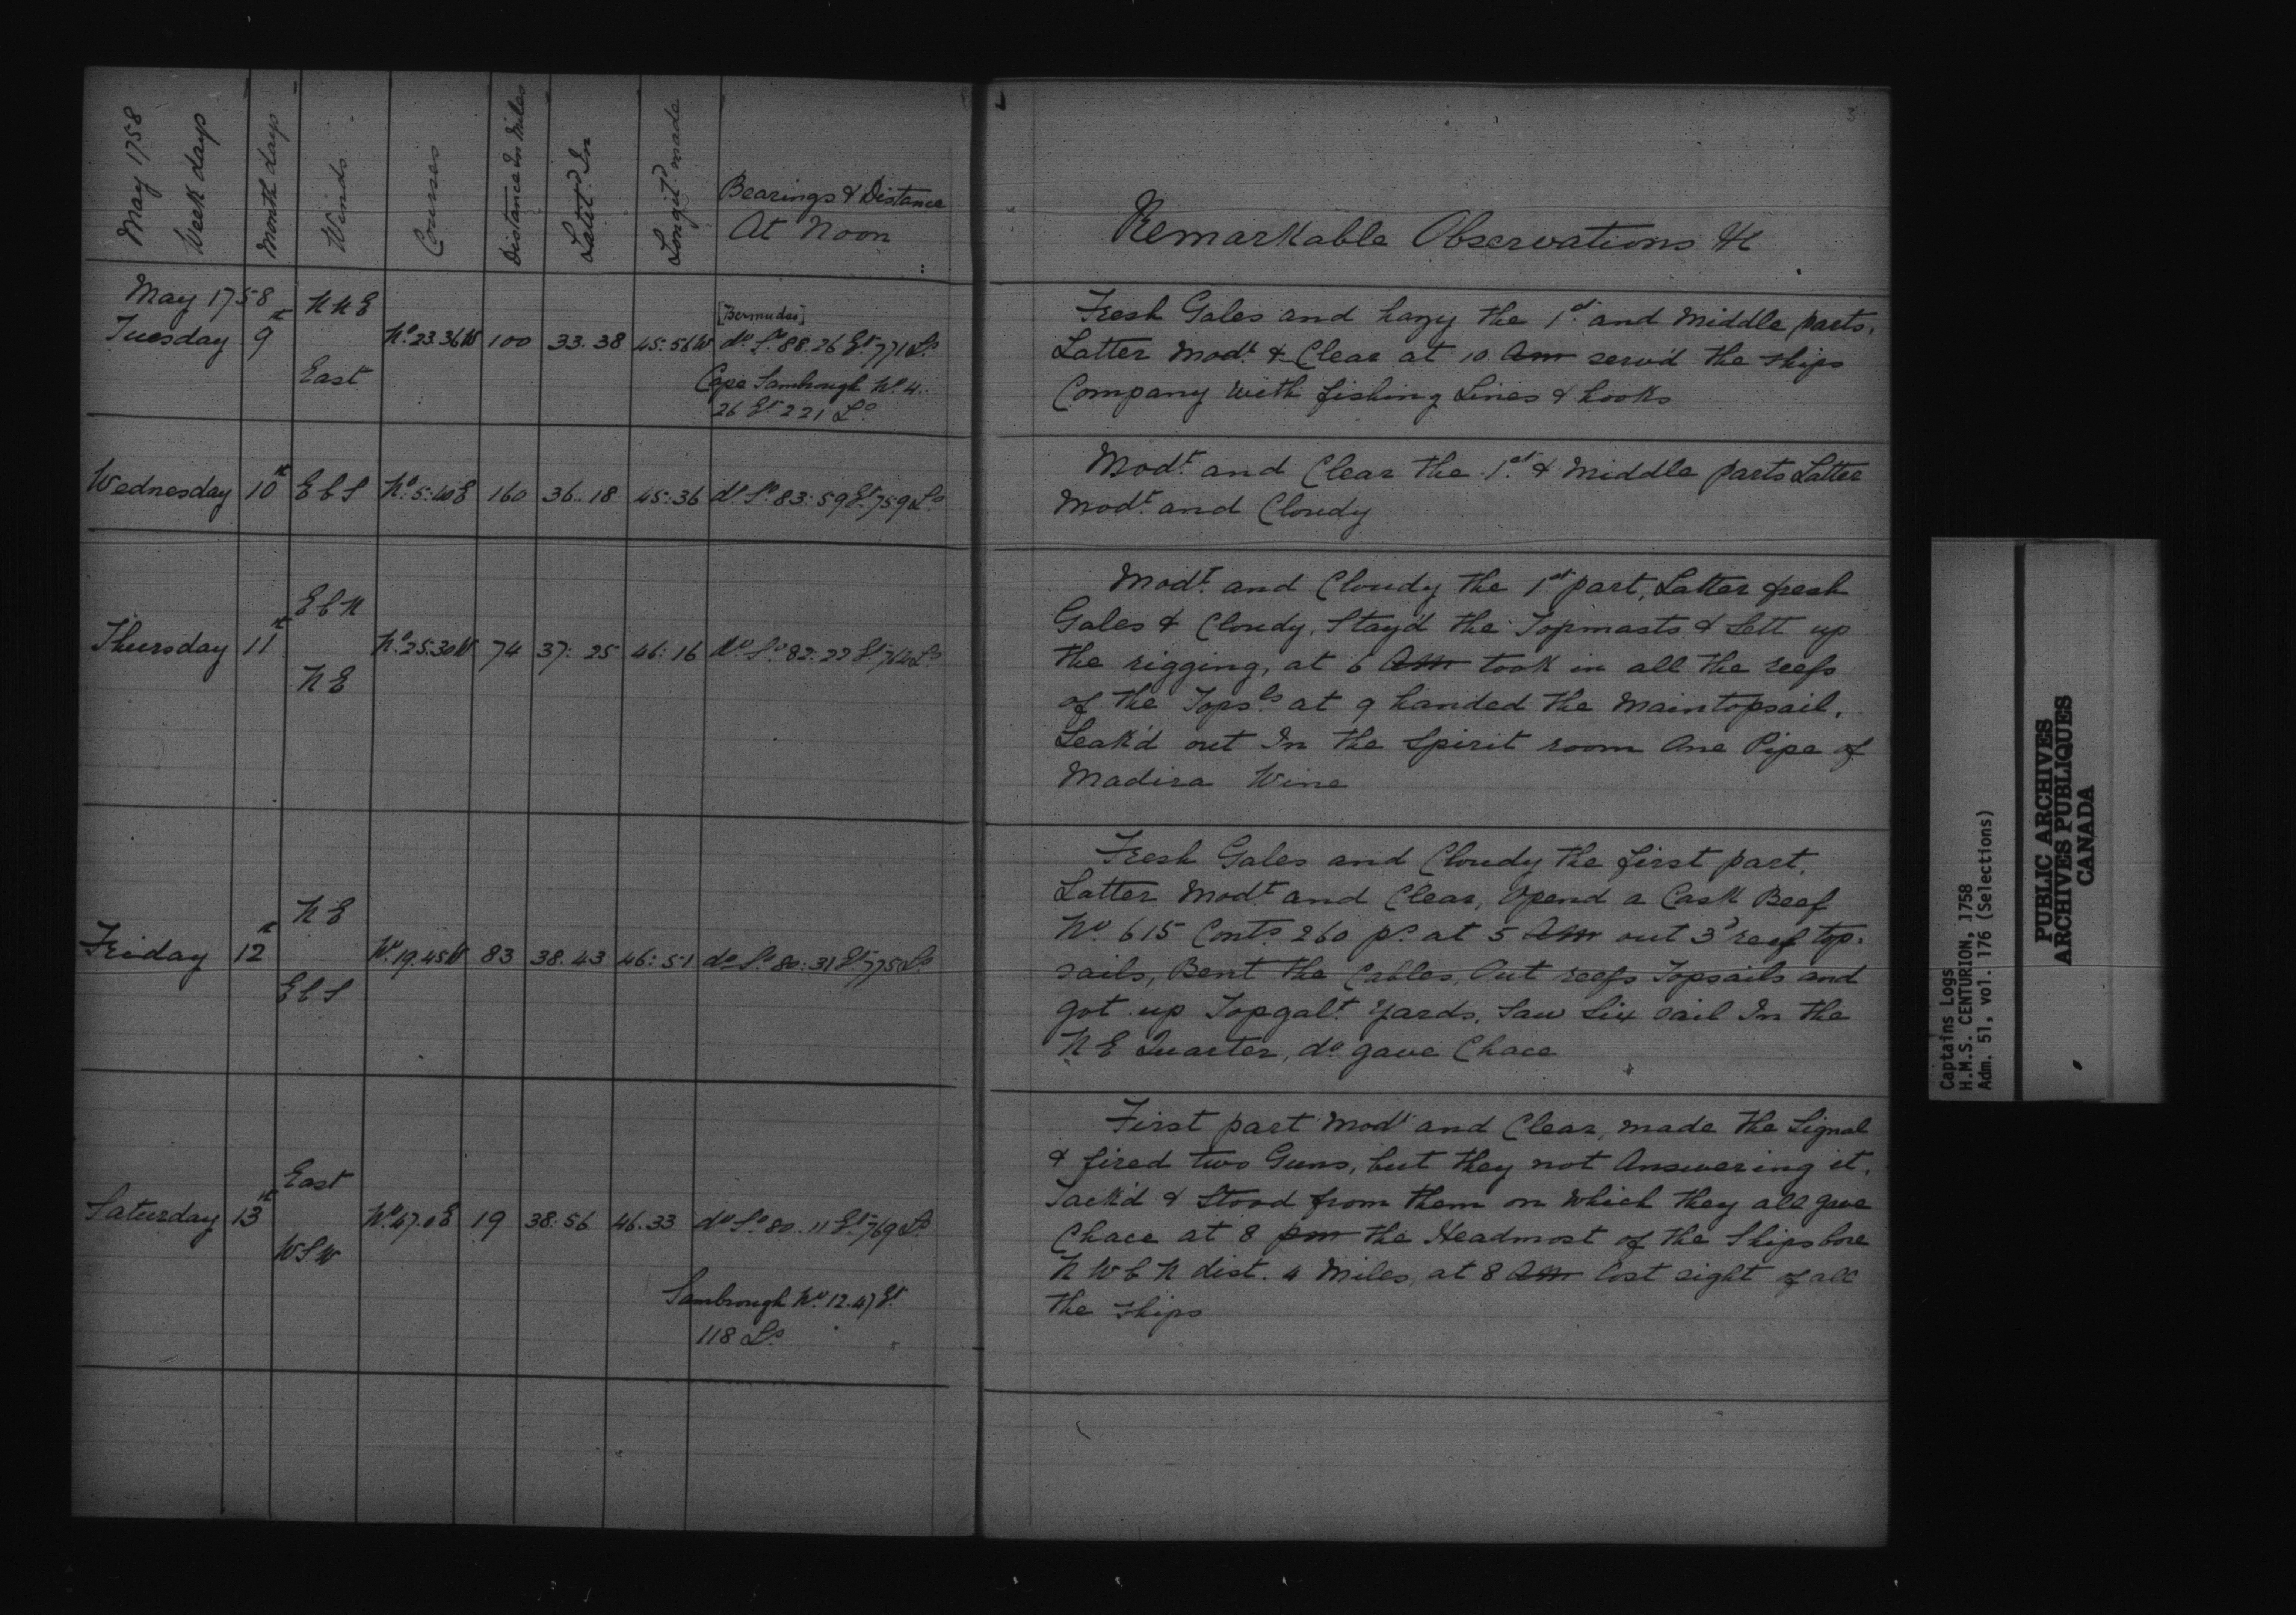 May 1758
Week days
Month days
Winds
Courses
Distance In Miles
Latitd. In
Longitd. made
Bearings & Distance
At Noon
May 1758
Tuesday 9th NNE East No. 23.36W 100 33.38 45:56W
[Bermudas]
do. So. 88.26 Et. 771 Ls.
Cape Sambrough No. 4..
26 Et. 221 Lo
Wednesday 10th EbS No. 5:40E 160 36..18 45:36 do. So. 83:59 Et. 759 Ls.
Thursday 11th EbN NE No. 25.30W 74 37:25 46:16 Do. So. 82:22 Et. 764 Ls.
Friday 12th NE EbS No. 19.45W 83 38.43 46:51 do So. 80:31 Et. 775 Ls.
Saturday 13th East WSW No. 47.0E 19 38:56 46.33 do So. 80..11 Et. 769 Ls.
Sambrough No. 12.47 Et.
118 Ls.
3
Remarkable Observations &c
Fresh Gales and hazy the 1st. and Middle parts.
Latter Modt. & Clear at 10 Am serv'd the ships
Company with fishing Lines & hooks
Modt. and Clear the 1st. & Middle parts Latter
Modt. and Cloudy
Modt. and Cloudy the 1st. part, Latter fresh
Gales & Cloudy, Stay'd the Topmasts & Sett up
the rigging, at 6 Am took in all the reefs
of the Topsls. at 9 handed the Maintopsail,
Leak'd out In the Spirit room One Pipe of
Madira Wine
Fresh Gales and Cloudy the first part,
Latter Modt. and Clear, Opend a Cask Beef
No. 615 Conts. 260 ps. at 5 Am out 3d reef top-
sails, Bent the Cables, Out reefs Topsails and
got up Topgalt. Yards, Saw Six sail In the
NE Quarter, do gave Chace
First part Modt and Clear, made the Signal
& fired two Guns, but they not Answering it,
Tack'd & Stood from them on which they all gave
Chace at 8 pm the Headmost of the Ships bore
NWbN dist. 4 Miles, at 8 Am lost sight of all
the ships
Captains Logs
H.M.S. CENTURION, 1758
Adm. 51, vol. 176 (Selections)
PUBLIC ARCHIVES
ARCHIVES PUBLIQUES
CANADA